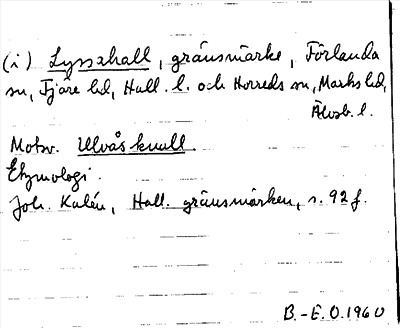 (i) Lysshall, gränsmärke, Förlanda
sn, Fjäre hd, Hall. l. och Horreds sn, Marks hd,
Älvsb. l.
Motsv. Ulvås knall.
Etymologi.
Joh. Kalén, Hall. gränsmärken, s. 92 f.
B.-E. O. 1960